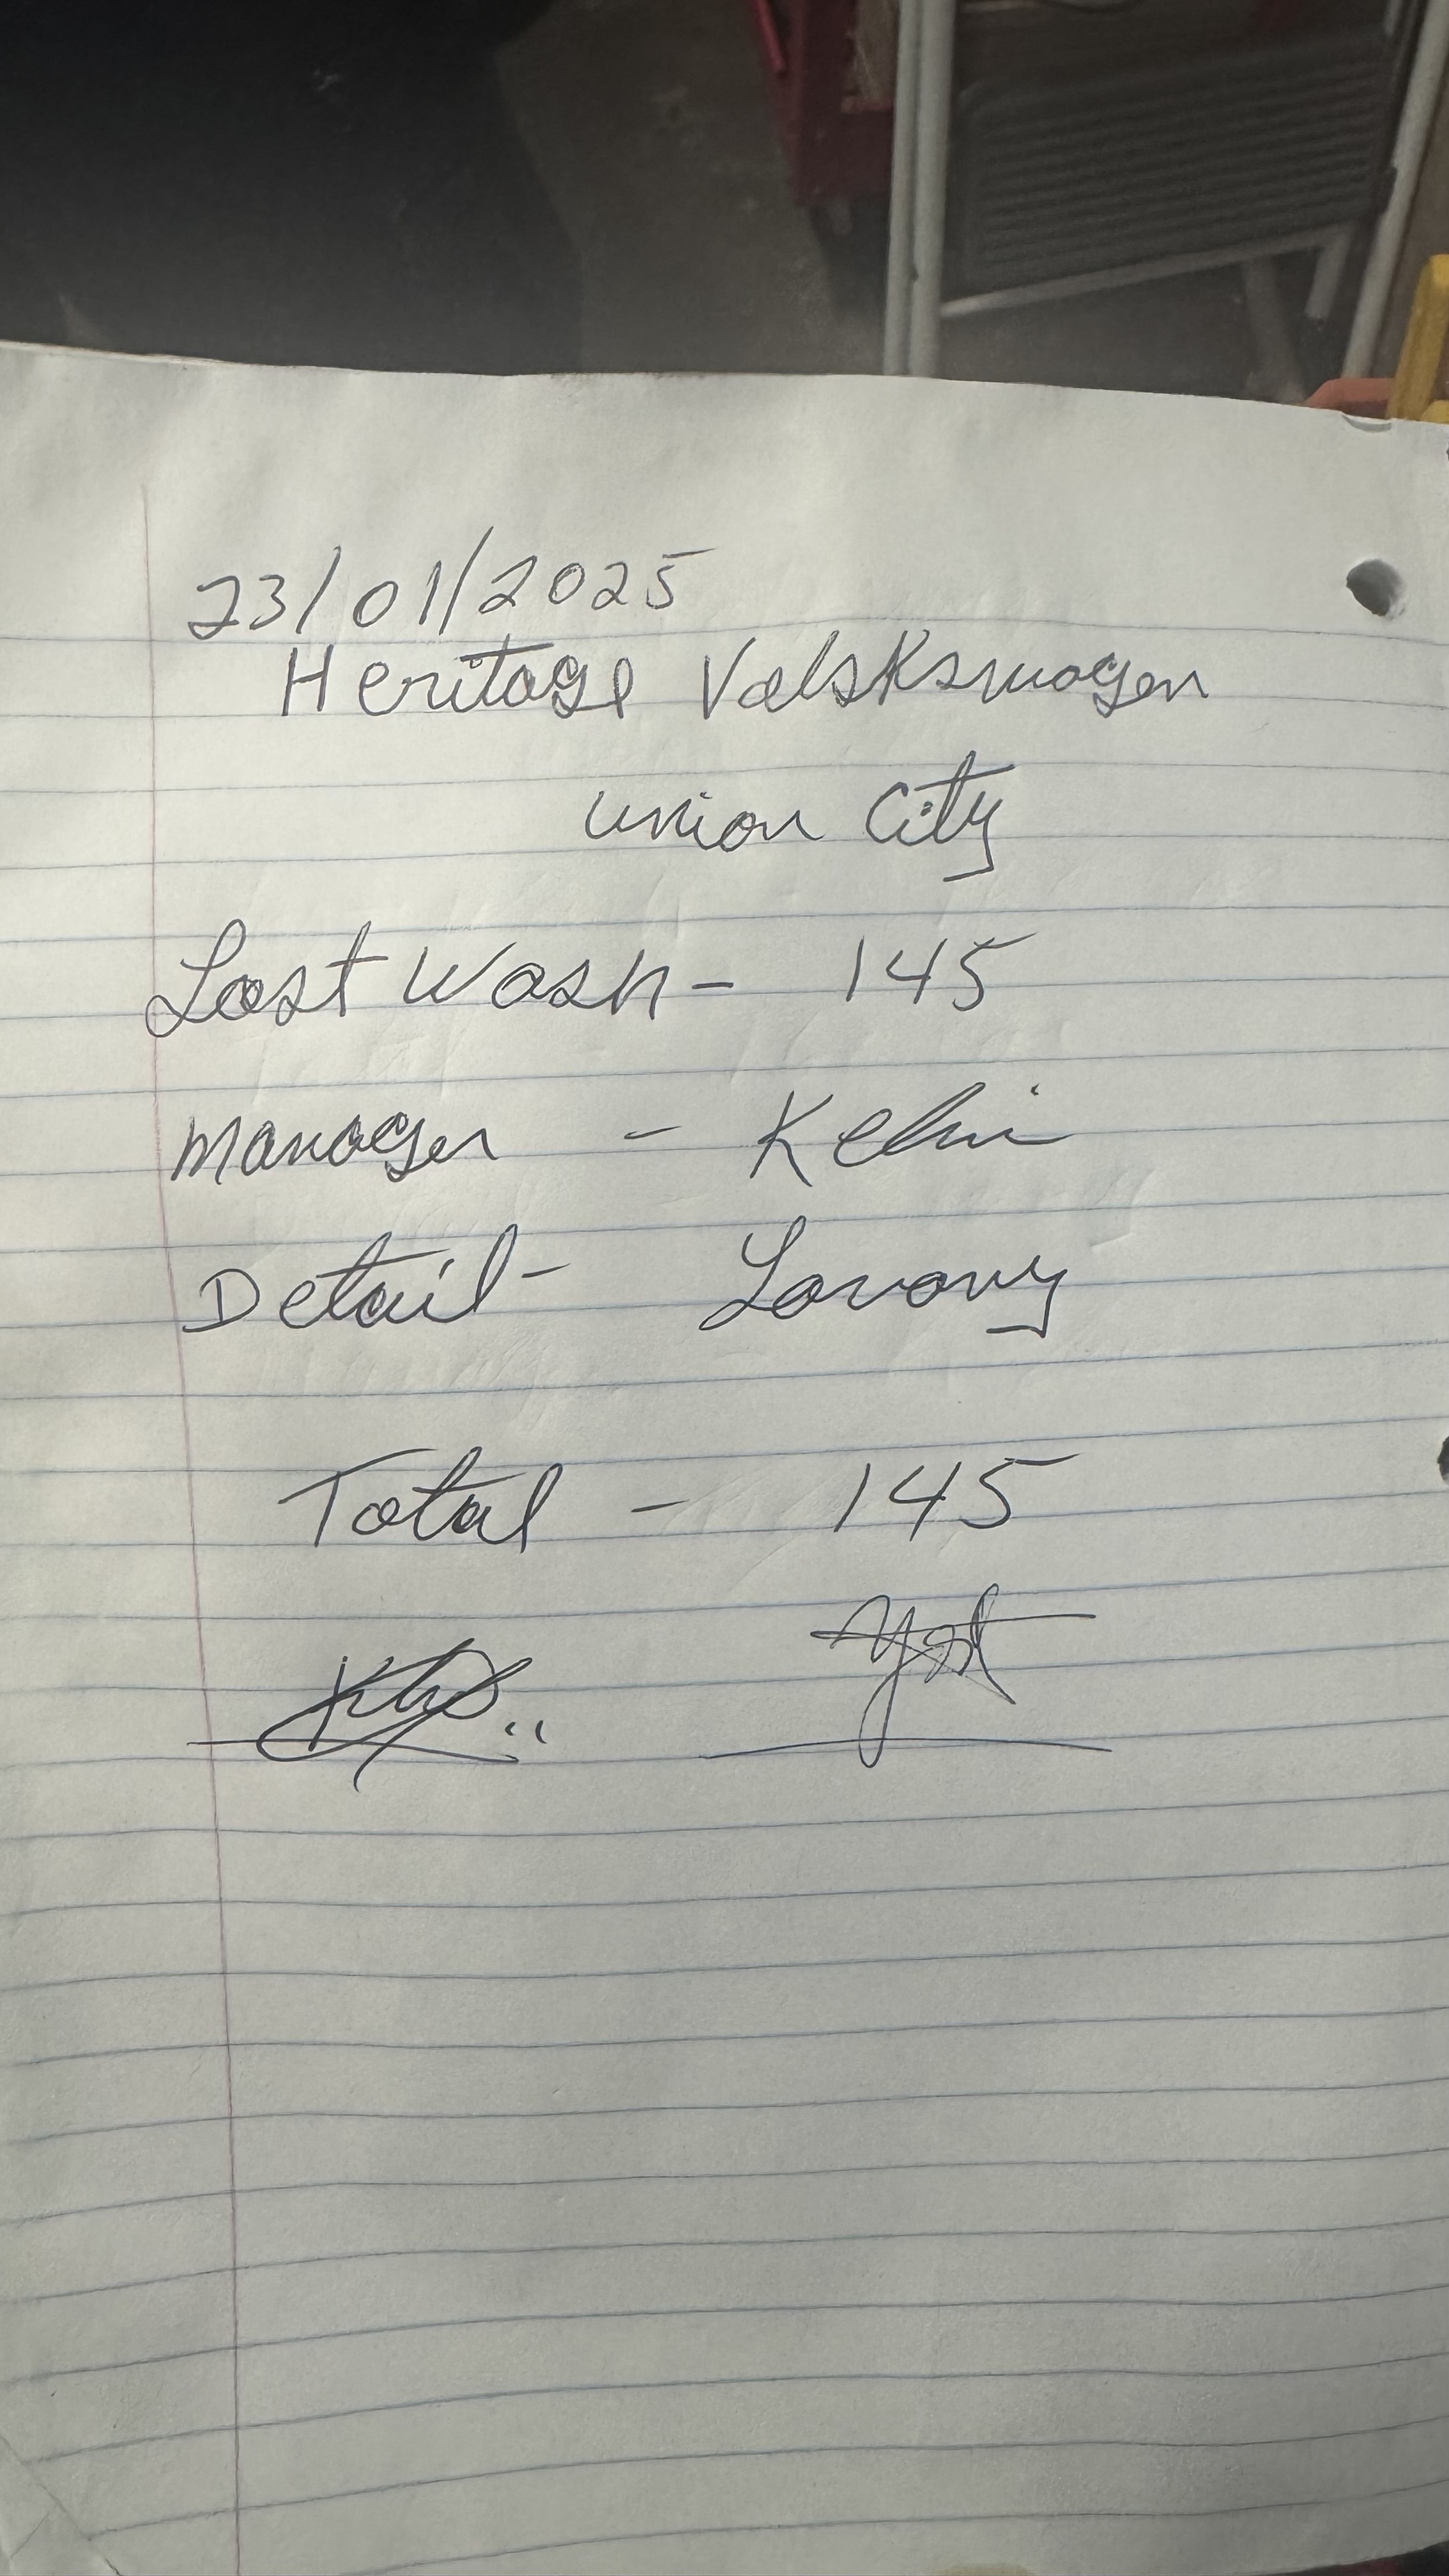 23/01/2025
Heritage Valskswagen
union City
Lost Wash - 145
Manager - Kelvi
Detail - Lovovy
Total - 145